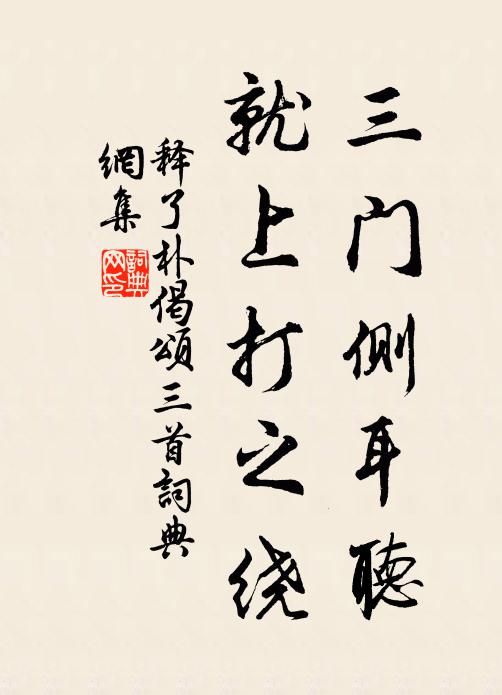 三门侧耳聽
就上打之绕
释了朴偈頌三首詞典
網集
詞典
网印